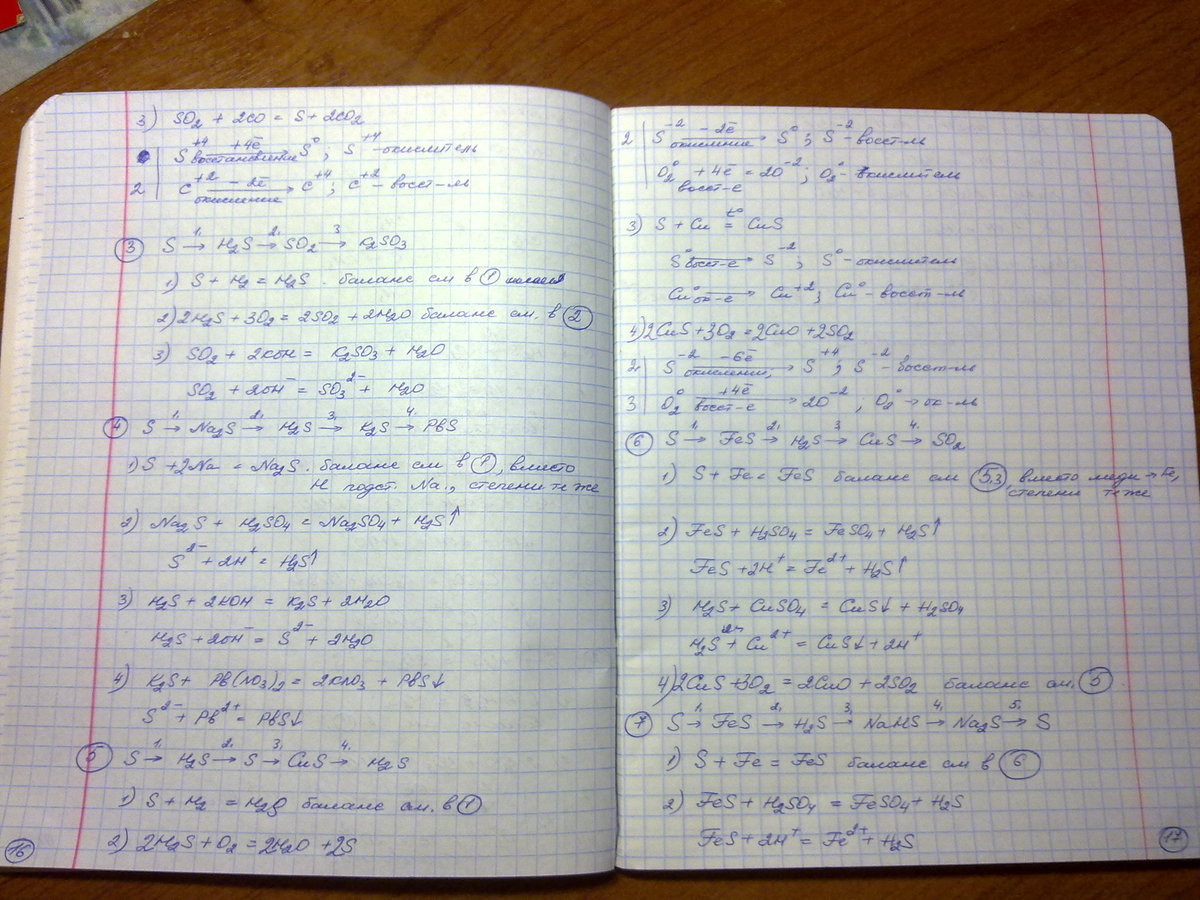 3) SO₂ + 2CO = S + 2CO₂
S⁺⁴ +4ē восстановление → S⁰; S⁺⁴ - окислитель
2 | C⁺² -2ē окисление → C⁺⁴; C⁺² - восст-ль
③ S →1, H₂S →2, SO₂ →3 K₂SO₃
1) S + H₂ = H₂S. баланс см в ①
2) 2H₂S + 3O₂ = 2SO₂ + 2H₂O баланс см. в ②
3) SO₂ + 2KOH = K₂SO₃ + H₂O
SO₂ + 2OH⁻ = SO₃²⁻ + H₂O
④ S →1, Na₂S →2, H₂S →3, K₂S →4. PbS
1) S + 2Na = Na₂S. баланс см в ①, вместо
H подст. Na., степени те же
2) Na₂S + H₂SO₄ = Na₂SO₄ + H₂S↑
S²⁻ + 2H⁺ = H₂S↑
3) H₂S + 2KOH = K₂S + 2H₂O
H₂S + 2OH⁻ = S²⁻ + 2H₂O
4) K₂S + Pb(NO₃)₂ = 2KNO₃ + PbS↓
S²⁻ + Pb²⁺ = PbS↓
⑤ S →1, H₂S →2, S →3, CuS →4. H₂S
1) S + H₂ = H₂S баланс см. в ①
2) 2H₂S + O₂ = 2H₂O + 2S
16
2 | S⁻² -2ē окисление → S⁰; S⁻² - восст-ль
O₂⁰ + 4ē = 2O⁻²; O₂⁰ - окислитель
восст-е
3) S + Cu =t° CuS
S⁰ восст-е → S⁻²; S⁰ - окислитель
Cu⁰ ок-е → Cu⁺²; Cu⁰ - восст-ль
4) 2CuS + 3O₂ = 2CuO + 2SO₂
2 | S⁻² -6ē окисление → S⁺⁴; S⁻² - восст-ль
3 | O₂⁰ +4ē восст-е → 2O⁻²; O₂⁰ → ок-ль
⑥ S →1, FeS →2, H₂S →3 CuS →4. SO₂
1) S + Fe = FeS баланс см (5.3), вместо меди → Fe,
степени те же
2) FeS + H₂SO₄ = FeSO₄ + H₂S↑
FeS + 2H⁺ = Fe²⁺ + H₂S↑
3) H₂S + CuSO₄ = CuS↓ + H₂SO₄
H₂S + Cu²⁺ = CuS↓ + 2H⁺
4) 2CuS + 3O₂ = 2CuO + 2SO₂ баланс см. ⑤
⑦ S →1, FeS →2, H₂S →3, NaHS →4, Na₂S →5, S
1) S + Fe = FeS баланс см в ⑥
2) FeS + H₂SO₄ = FeSO₄ + H₂S
FeS + 2H⁺ = Fe²⁺ + H₂S
17